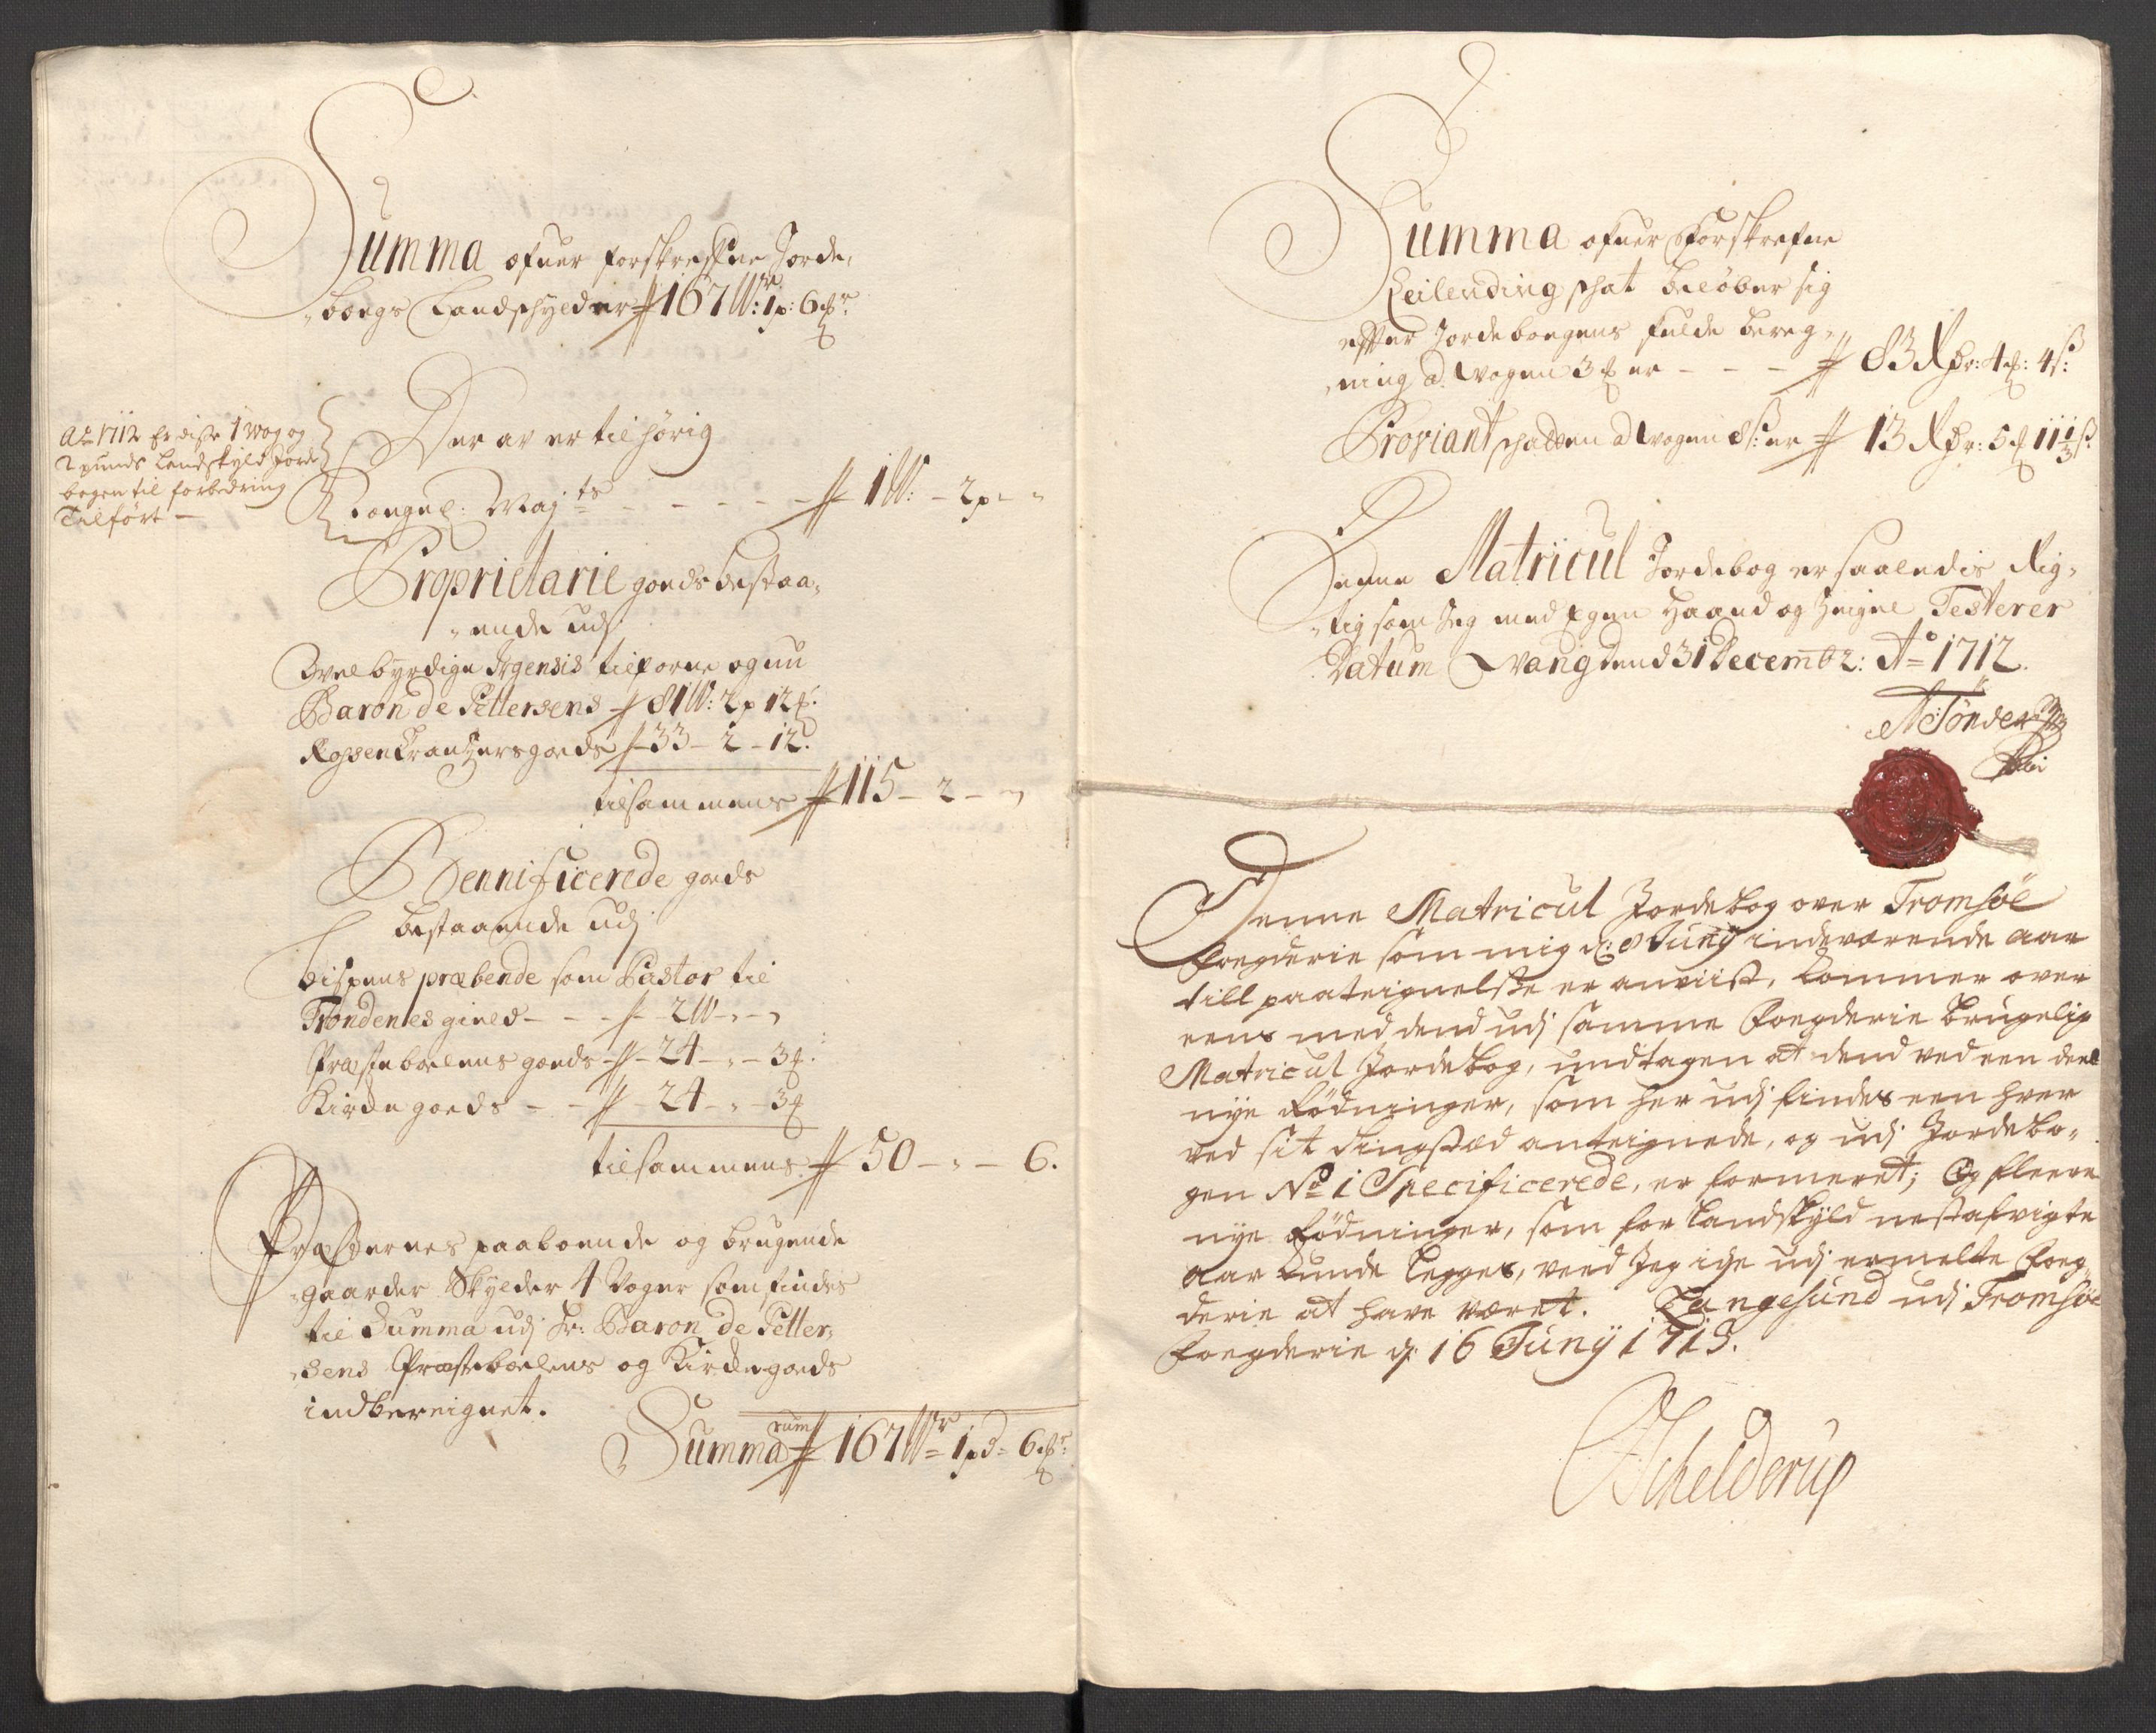 Summa ofuer forskrefne Jorde,
„boegs Landschyld er 167 W:r 1 p: 6 mk:r
Der av er tilhörig
Ao 1712 er disse 1 Wog og
2 punds Landskyld Jorde
bogen til forbedring
Tilfört –
Kongel: Maj:ts – – – – 1 W: – 2 p – „
Proprietarie goeds bestaa,
„ende udj
Welbyrdige Irgensis tilforne og nu
Baron de Pettersens – 81 W: 2 p 12 mk:
Rosenkrantzers goeds – 33 – 2 – 12.
tilsammens 115 – 2 – „
Bennificerede goeds
bestaaende udj
bispens præbende som Pastor til
Trondenes gield – – – 2 W – „ – „
Præsteboelens goeds – 24 – „ – 3 mk.
Kirche goeds – – 24 – „ – 3 mk
tilsammens 50 – „ – 6.
Præsternes paaboende og brugende
gaarder Skylder 4 Voger som findes
til Summa udj Hr: Baron de Petter,
„sens Præsteboelens og Kirche goeds
indbereignet.
Summa rum 167 W:r – 1 pd – 6 mk:r
Summa ofuer Forskrefne
Leilending schat beløber sig
efter Jordeboegens fulde bereg„
„ning a Wogen 3 mk er – – – 83 Rdr: 4 mk: 4 s:
Proviant schatten a Wogen 8 s: er 13 Rdr: 5 mk 11 1/3 s:
Denne Matricul Jordebog er saaledis Rig„
„tig som Jeg med Egen Haand og Zeigne Testerer
Datum Wang dend 31 Decembr: Ao 1712.
A Tönder
Denne Matricul Jordebog over Tromsöe
Foegderie som mig d: 8 Junÿ indeværende aar
till paateignelsse er anviist, kommer over
eens med dend udj samme Foegderie brugelig
Matricul Jordebog, undtagen at dend ved een deel
nye Rödninger, som her udj findes een hver
ved sit tingstæd anteignede, og udj Jordebo„
gen No 1 Specificerede, er formeret; Og fleere
nye Rödninger, som for Landskyld nestafvigte
aar kunde legges, veed Jeg icke udj ermelte Foeg„
derie at have været. Langesund udj Tromsöe
Foegderie d: 16 Junÿ 1713.
Schelderup